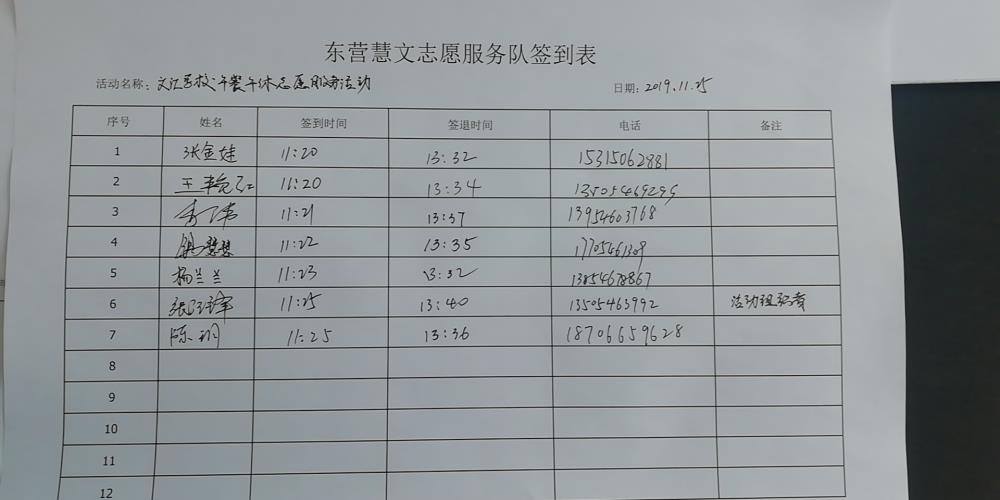 东营慧文志愿服务队签到表
活动名称：文汇学校午餐午休志愿服务活动 日期：2019.11.25
序号 姓名 签到时间 签退时间 电话 备注
1 张金娃 11:20 13:32 15315062881
2 11:20 13:34
3 11:21 13:37 13954603768
4 11:22 13:35
5 杨兰兰 11:23 13:32 13854678867
6 11:25 13:40 13505463992 活动组织者
7 陈玥 11:25 13:36 18706659628
8
9
10
11
12